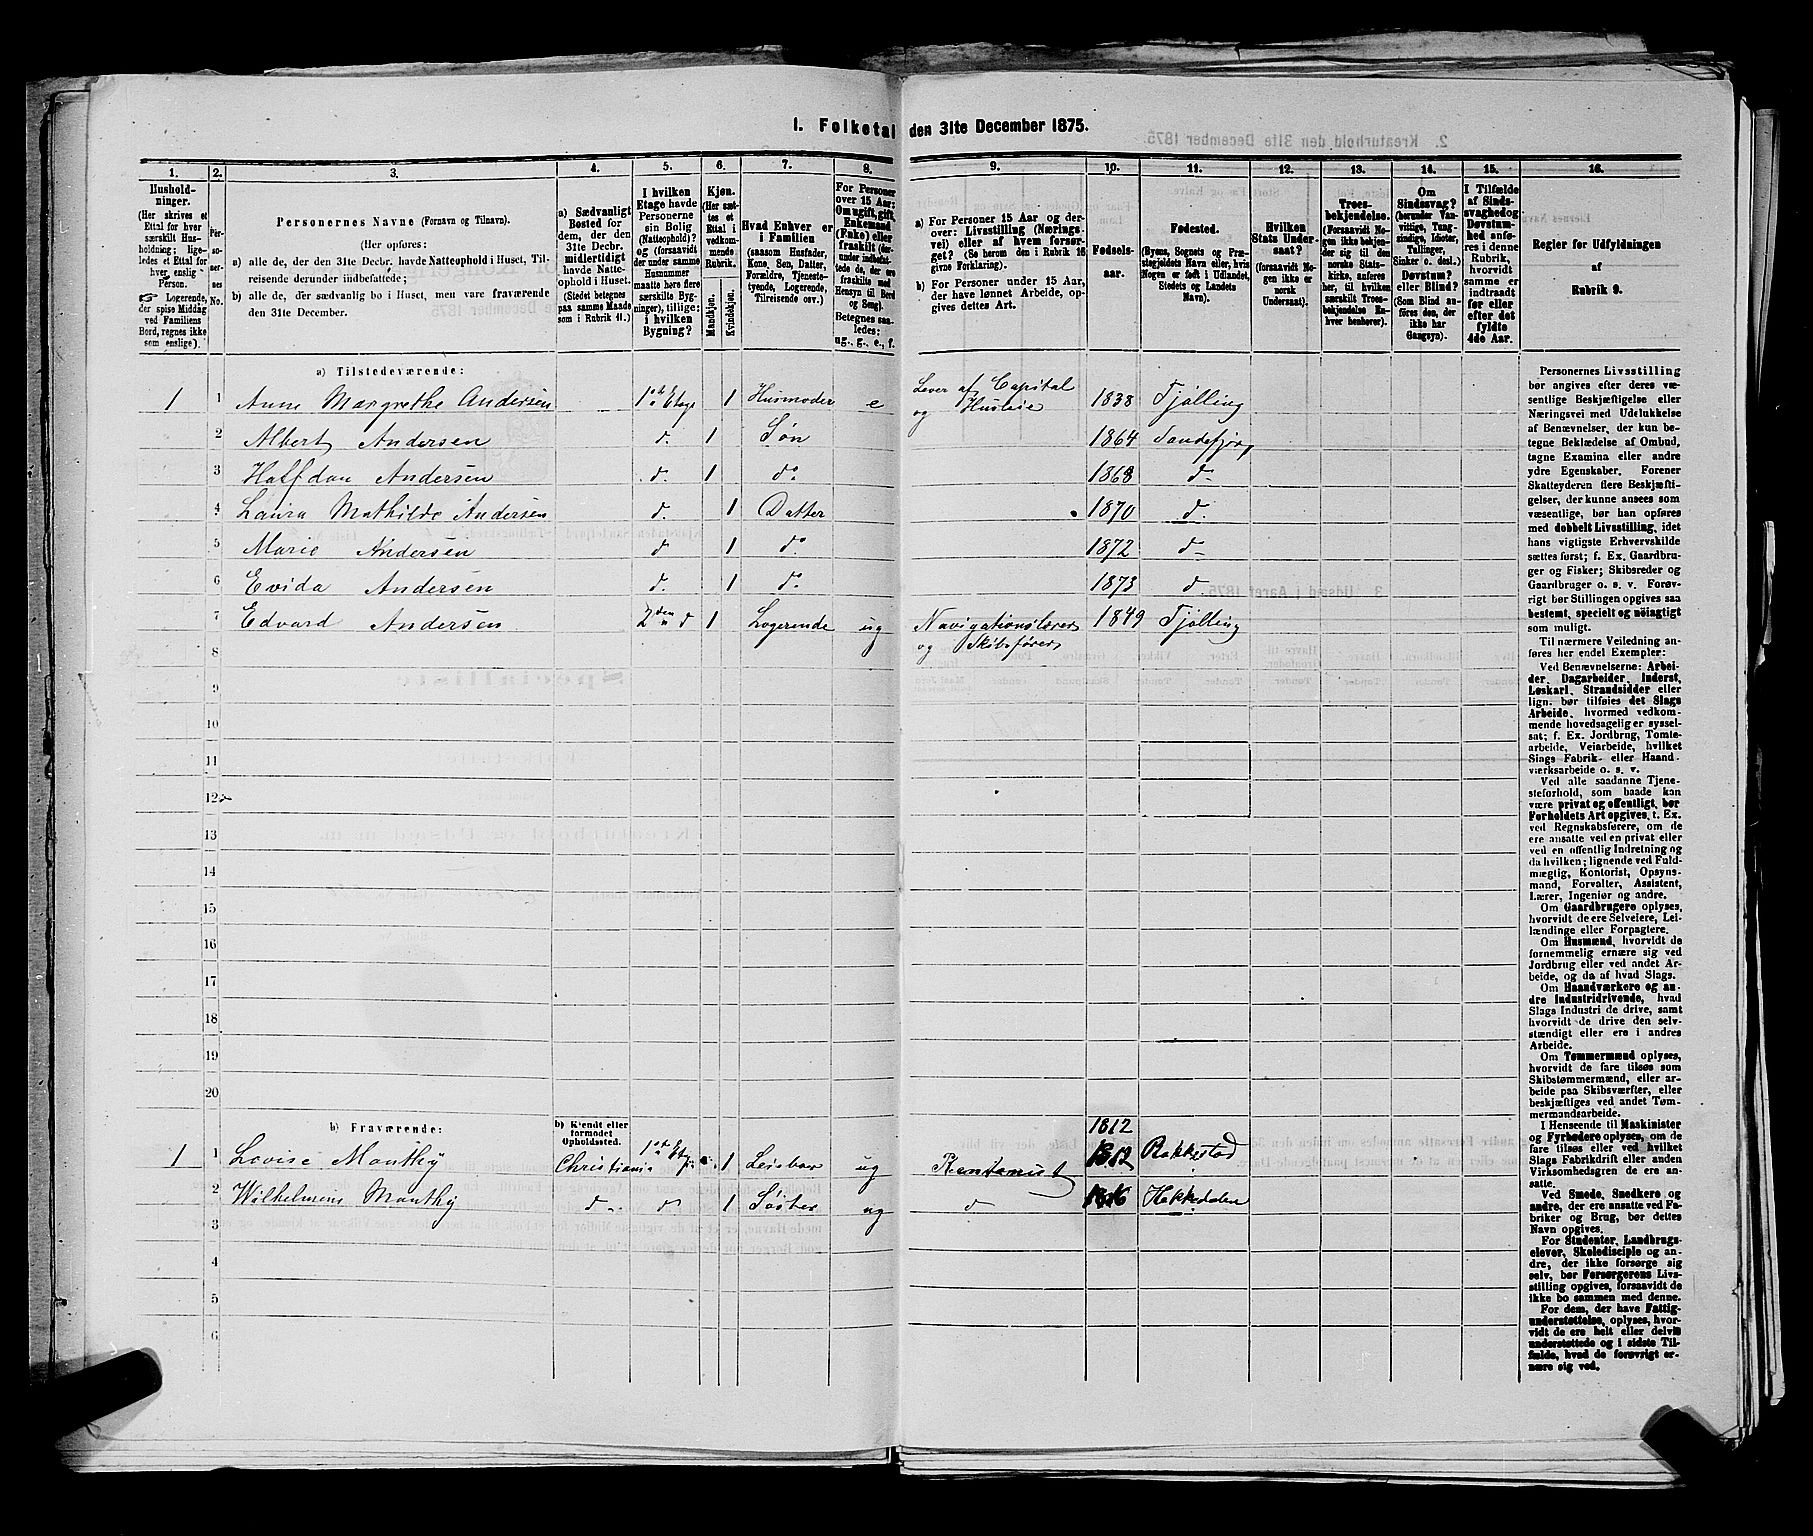 1. Folketal den 31te December 1875.
1.
Hushold-
ninger.
(Her skrives et
Ettal for hver
særskilt Hus-
holdning; lige-
ledes et Ettal for
hver enslig
Person.
☞ Logerende,
der spise Middag
ved Familiens
Bord, regnes ikke
som enslige).
2.
Per-
so-
ner-
nes
No.
3.
Personernes Navne (Fornavn og Tilnavn).
(Her opføres:
a) alle de, der den 31te Decbr. havde Natteophold i Huset, Til-
reisende derunder indbefattede;
b) alle de, der sædvanlig bo i Huset, men vare fraværende
den 31te December.
4.
a) Sædvanligt
Bosted for
dem, der den
31te Decbr.
midlertidigt
havde Natte-
ophold i Huset.
(Stedet betegnes
paa samme Maade
som i Rubrik 11.)
5.
I hvilken
Etage havde
Personerne
sin Bolig
(Natteophold)?
og (forsaavidt
der under samme
Husnummer
maatte høre flere
særskilte Byg-
ninger), tillige:
i hvilken
Bygning?
6.
Kjøn.
(Her sæt-
tes et
Ettal i
vedkom-
mende
Rubrik.
Mandkjøn.
Kvindekjøn.
7.
Hvad Enhver er
i Familien
(saasom Husfader,
Kone, Søn, Datter,
Forældre, Tjeneste-
tyende, Logerende,
Tilreisende osv.)
8.
For Personer
over 15 Aar:
Om ugift, gift,
Enkemand
(Enke) eller
fraskilt (der-
under indbefat-
tede de, der ere
fraskilte med
Hensyn til Bord
og Seng).
Betegnes saa-
ledes:
ug., g., e., f.
9.
a) For Personer 15 Aar og der-
over: Livsstilling (Nærings-
vei) eller af hvem forsør-
get? (Se herom den i Rubrik 16
givne Forklaring).
b) For Personer under 15 Aar,
der have lønnet Arbeide, op-
gives dettes Art.
10.
Fødsels-
aar.
11.
Fødested.
(Byens, Sognets og Præ-
stegjeldets Navn eller, hvis
Nogen er født i Udlandet,
Stedets og Landets
Navn).
12.
Hvilken
Stats Under-
saat?
(forsaavidt No-
gen ikke er
norsk
Undersaat).
13.
Troes-
bekjendelse.
(Forsaavidt No-
gen ikke bekjen-
der sig til den
norske Stats-
kirke, anføres
her, til hvilken
særskilt Troes-
bekjendelse En-
hver henhører).
14.
Om
Sindssvag?
(herunder Van-
vittige, Tung-
sindige, Idioter,
Tullinger,
Sinker o. desl.)
Døvstum?
eller Blind?
(Som Blind an-
føres den, der
ikke har
Gangsyn).
15.
I Tilfælde
af Sinds-
svaghed og
Døvstum-
hed anfø-
res i denne
Rubrik,
hvorvidt
samme er
indtraadt
før eller
efter det
fyldte
4de Aar.
16.
Regler for Udfyldningen
af
Rubrik 9.
a) Tilstedeværende:
1 1 Anne Margrethe Andersen 1ste Etage 1 Husmoder e Lever af Capital og Husleie 1838 Tjølling
2 Albert Andersen d. 1 Søn 1864 Sandefjord
3 Halfdan Andersen d. 1 do 1868 d
4 Laura Mathilde Andersen d. 1 Datter 1870 d.
5 Marie Andersen d 1 do 1872 d
6 Evida Andersen d. 1 do 1873 d
7 Edvard Andersen 2den d 1 Logerende ug Navigationslærer og Skibsfører 1849 Tjølling
8
9
10
11
12
13
14
15
16
17
18
19
20
b) Fraværende:
b) Kjendt eller
formodet
Opholdssted.
1812
1 1 Lovise Monthy Christiania 1ste Etage 1 ug Rentenist 1812 Rakkestad
2 Wilhelmene Monthy d d 1 Søster ug d 1816 Hakkedalen
3
4
5
6
Personernes Livsstilling
bør angives efter deres væ-
sentlige Beskjæftigelse eller
Næringsvei med Udelukkelse
af Benævnelser, der kun be-
tegne Beklædelse af Ombud,
tagne Examina eller andre
ydre Egenskaber. Forener
Skatteyderen flere Beskjæfti-
gelser, der kunne ansees som
væsentlige, bør han opføres
med dobbelt Livsstilling, idet
hans vigtigste Erhvervskilde
sættes først; f. Ex. Gaardbru-
ger og Fisker; Skibsreder og
Gaardbruger o. s. v. Forøv-
rigt bør Stillingen opgives saa
bestemt, specielt og nöiagtigt
som muligt.
Til nærmere Veiledning an-
føres her endel Exempler:
Ved Benævnelserne: Arbei-
der, Dagarbeider, Inderst,
Løskarl, Strandsidder eller
lign. bør tilføies det Slags
Arbeide, hvormed vedkom-
mende hovedsagelig er syssel-
sat; f. Ex. Jordbrug, Tomte-
arbeide, Veiarbeide, hvilket
Slags Fabrik- eller Haand-
værksarbeide o. s. v.
Ved alle saadanne Tjene-
steforhold, som baade kan
være privat og offentligt, bør
Forholdets Art opgives, t. Ex.
ved Regnskabsførere, om de
ere ansatte ved en privat eller
ved en offentlig Indretning og
da hvilken; lignende ved Fuld-
mægtig, Kontorist, Opsyns-
mand, Forvalter, Assistent,
Lærer, Ingeniør og andre.
Om Gaardbrugere oplyses,
hvorvidt de ere Selveiere, Lei-
lændinge eller Forpagtere.
Om Husmænd, hvorvidt de
fornemmelig ernære sig ved
Jordbrug eller ved andet Ar-
beide, og da af hvad Slags.
Om Haandværkere og an-
dre Industridrivende, hvad
Slags Industri de drive, samt
hvorvidt de drive den selv-
stændigt eller ere i andres
Arbeide.
Om Tømmermænd oplyses,
hvorvidt de fare tilsøs som
Skibstømmermænd, eller ar-
beide paa Skibsværfter, eller
beskjæftiges ved andet Tøm-
mermandsarbeide.
I Henseende til Maskinister
og Fyrbødere oplyses, om de
fare tilsøs eller ved hvilket
Slags Fabrikdrift eller anden
Virksomhedsgren de ere an-
satte.
Ved Smede, Snedkere og
andre, der ere ansatte ved Fa-
briker og Brug, bør dettes
Navn opgives.
For Studenter, Landbrugs-
elever, Skoledisciple og an-
dre, der ikke forsørge sig
selv, bør Forsørgerens Livs-
stilling opgives, forsaavidt de
ikke bo sammen med denne.
For dem, der have Fattig-
understøttelse, oplyses, hvor-
vidt de ere helt eller delvis
understøttede og i sidste Til-
fælde, hvad de forøvrigt er-
nære sig ved.